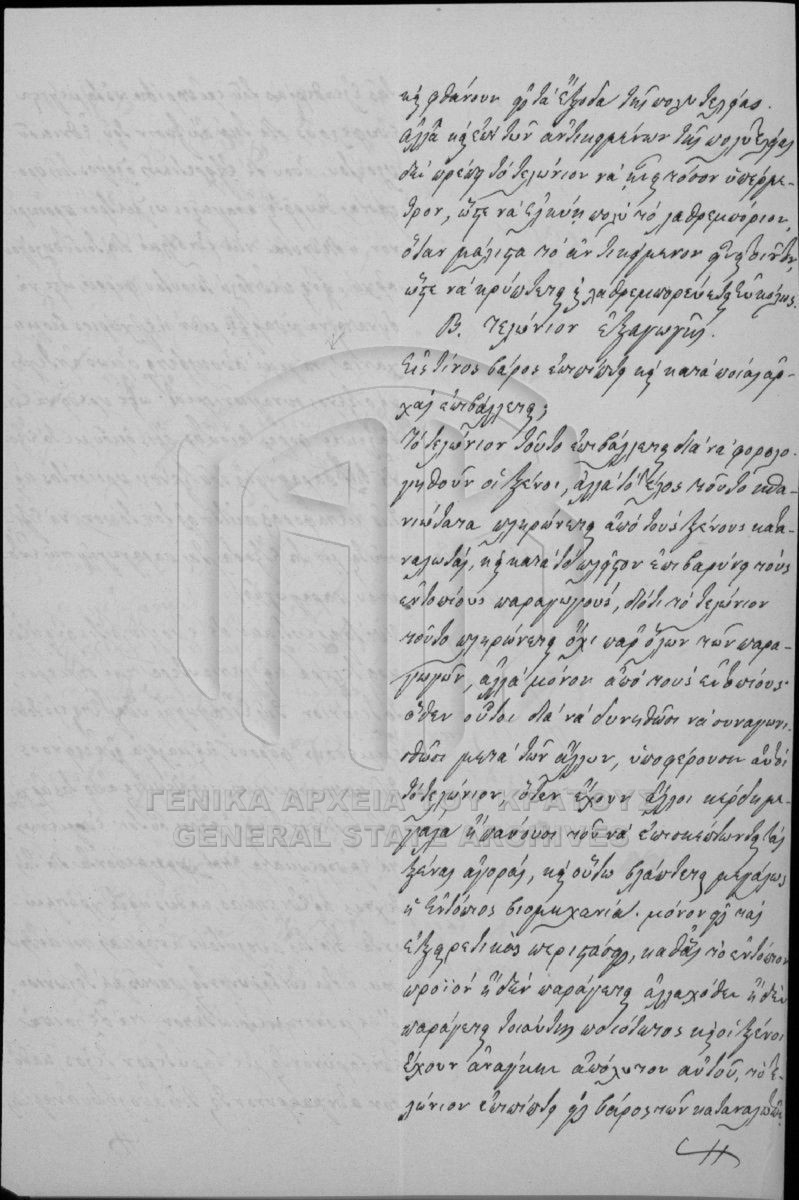 καὶ φθάνουν εἰς τὰ ἔξοδα τῆς πολυτελείας.
ἀλλὰ καὶ ἐπὶ τῶν ἀντικειμένων τῆς πολυτελείας
δὲν πρέπει τὸ τελώνιον νὰ ᾖναι τόσον ὑπέρμε-
τρον, ὥστε νὰ ἑλκύῃ πολὺ τὸ λαθρεμπόριον,
ὅταν μάλιστα τὸ ἀντικείμενον
ὥστε νὰ κρύπτεται ἢ λαθρεμπορεύεται εὐκόλως.
Β. Τελώνιον ἐξαγωγῆς.
Εἰς τίνος βάρος ἐπιπίπτει καὶ κατὰ ποίας ἀρ-
χὰς ἐπιβάλλεται;
Τὸ τελώνιον τοῦτο ἐπιβάλλεται διὰ νὰ φορολο-
γηθοῦν οἱ ξένοι, ἀλλὰ τὸ τέλος τοῦτο σπα-
νιώτατα πληρώνεται ἀπὸ τοὺς ξένους κατα-
ναλωτάς, καὶ κατὰ τὸ πλεῖστον ἐπιβαρύνει τοὺς
ἐντοπίους παραγωγούς, διότι τὸ τελώνιον
τοῦτο πληρώνεται ὄχι παρ' ὅλων τῶν παρα-
γωγῶν, ἀλλὰ μόνον ἀπὸ τοὺς ἐντοπίους·
ὅθεν οὗτοι διὰ νὰ δυνηθῶσι νὰ συναγωνι-
σθῶσι μετὰ τῶν ἄλλων, ὑποφέρουσιν αὐτοὶ
τὸ τελώνιον, ὅταν ἔχουν ἄλλοι κέρδη με-
γάλα ἢ παύουσι τοῦ νὰ ἐπισκέπτωνται τὰς
ξένας ἀγοράς, καὶ οὕτω βλάπτεται μεγάλως
ἡ ἐντόπιος βιομηχανία. μόνον εἰς τὰς
ἐξαιρετικὰς περιστάσεις, καθ' ἃς τὸ ἐντόπιον
προϊὸν ἢ δὲν παράγεται ἀλλαχόθεν ἢ δὲν
παράγεται τοιαύτης ποιότητος καὶ οἱ ξένοι
ἔχουν ἀνάγκην ἀπόλυτον αὐτοῦ, τὸ τε-
λώνιον ἐπιπίπτει εἰς βάρος τῶν καταναλωτῶν.
ΓΕΝΙΚΑ ΑΡΧΕΙΑ ΤΟΥ ΚΡΑΤΟΥΣ
GENERAL STATE ARCHIVES